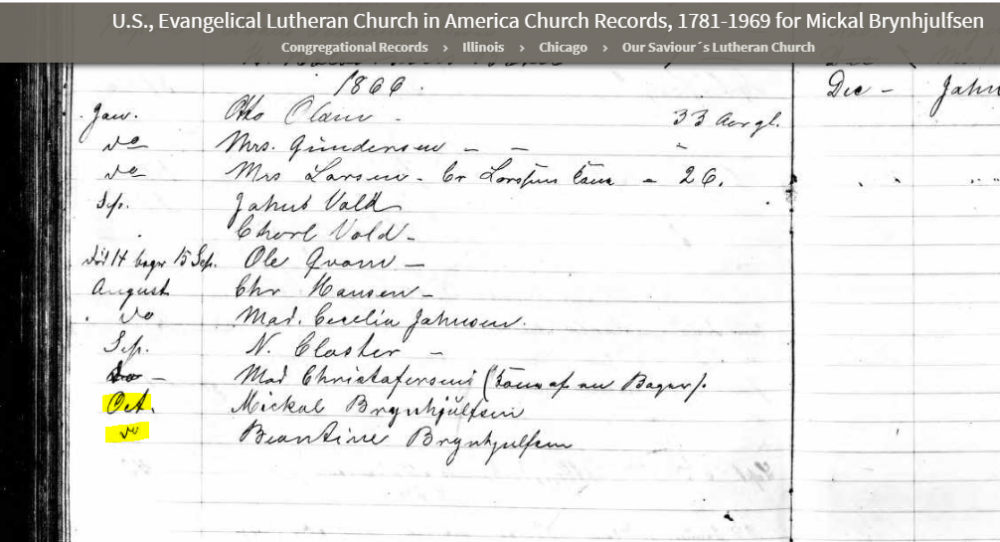 U.S., Evangelical Lutheran Church in America Church Records, 1781-1969 for Mickal Brynhjulfsen
Congregational Records > Illinois > Chicago > Our Saviour´s Lutheran Church
1866.
Dec - Jahn
Jan. Otto Olsen - 33 Aar gl.
do Mrs. Gundersen - - "
do Mrs Larsen - - 26.
Sep. Jakub Vold
Charl Vold -
död 14 begr 15 Sep. Ole Qvam -
August Chr Hansen -
do Mad. Cecelia Jahnsen.
Sep. N. Claster -
do - Mad Christafersens
Oct. Mickal Brynhjülfsen
do Brynhjulfsen